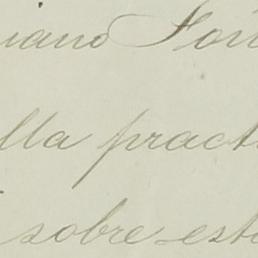 iano Fon
lla pract
sobre est